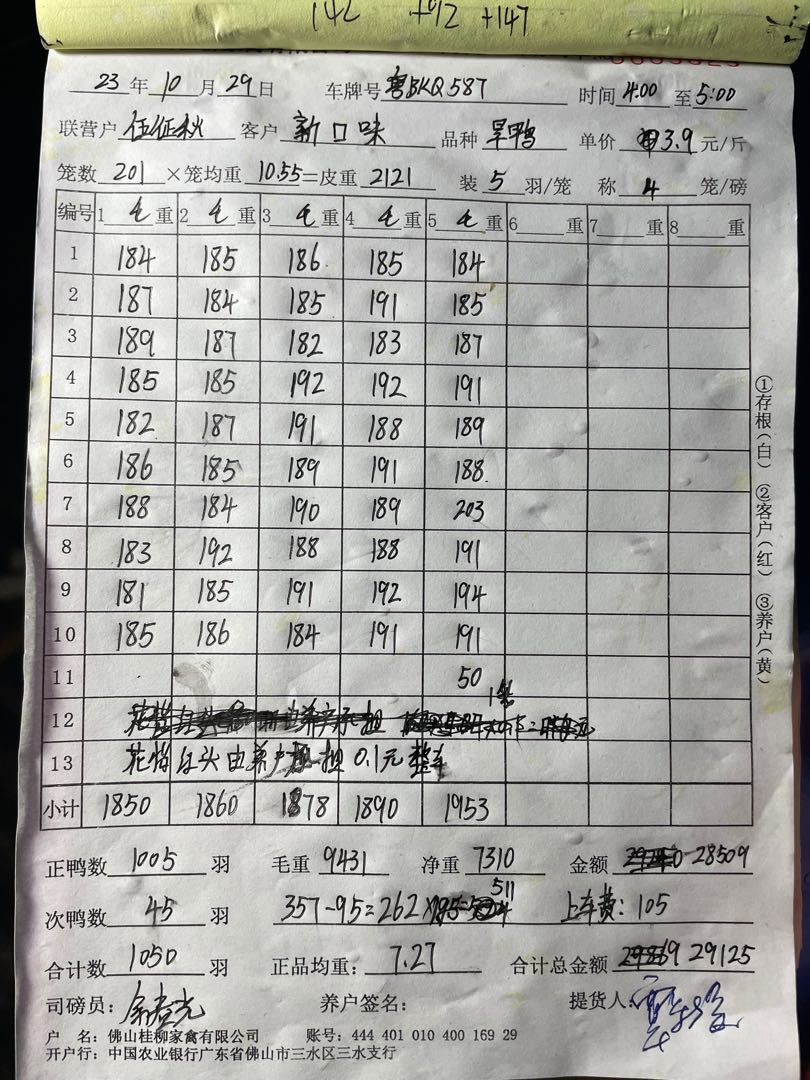 142 +92 +147
23 年 10 月 29 日 车牌号 粤BKQ587 时间 4:00 至 5:00
联营户 任征秋 客户 新口味 品种 旱鸭 单价 3.9 元/斤
笼数 201 ×笼均重 10.55=皮重 2121 装 5 羽/笼 称 4 笼/磅
编号 1 毛 重 2 毛 重 3 毛 重 4 毛 重 5 毛 重 6 重 7 重 8 重
1 184 185 186 185 184
2 187 184 185 191 185
3 189 187 182 183 187
4 185 185 192 192 191
5 182 187 191 188 189
6 186 185 189 191 188
7 188 184 190 189 203
8 183 192 188 188 191
9 181 185 191 192 194
10 185 186 184 191 191
11 50
1笼
12
13 花苗白头由养户担 0.1元整车
小计 1850 1860 1878 1890 1953
正鸭数 1005 羽 毛重 9431 净重 7310 金额 28509
次鸭数 45 羽 357-95=262 511 上车费:105
合计数 1050 羽 正品均重: 7.27 合计总金额 29125
司磅员: 养户签名: 提货人:
户 名:佛山桂柳家禽有限公司 账号:444 401 010 400 169 29
开户行:中国农业银行广东省佛山市三水区三水支行
①存根(白) ②客户(红) ③养户(黄)